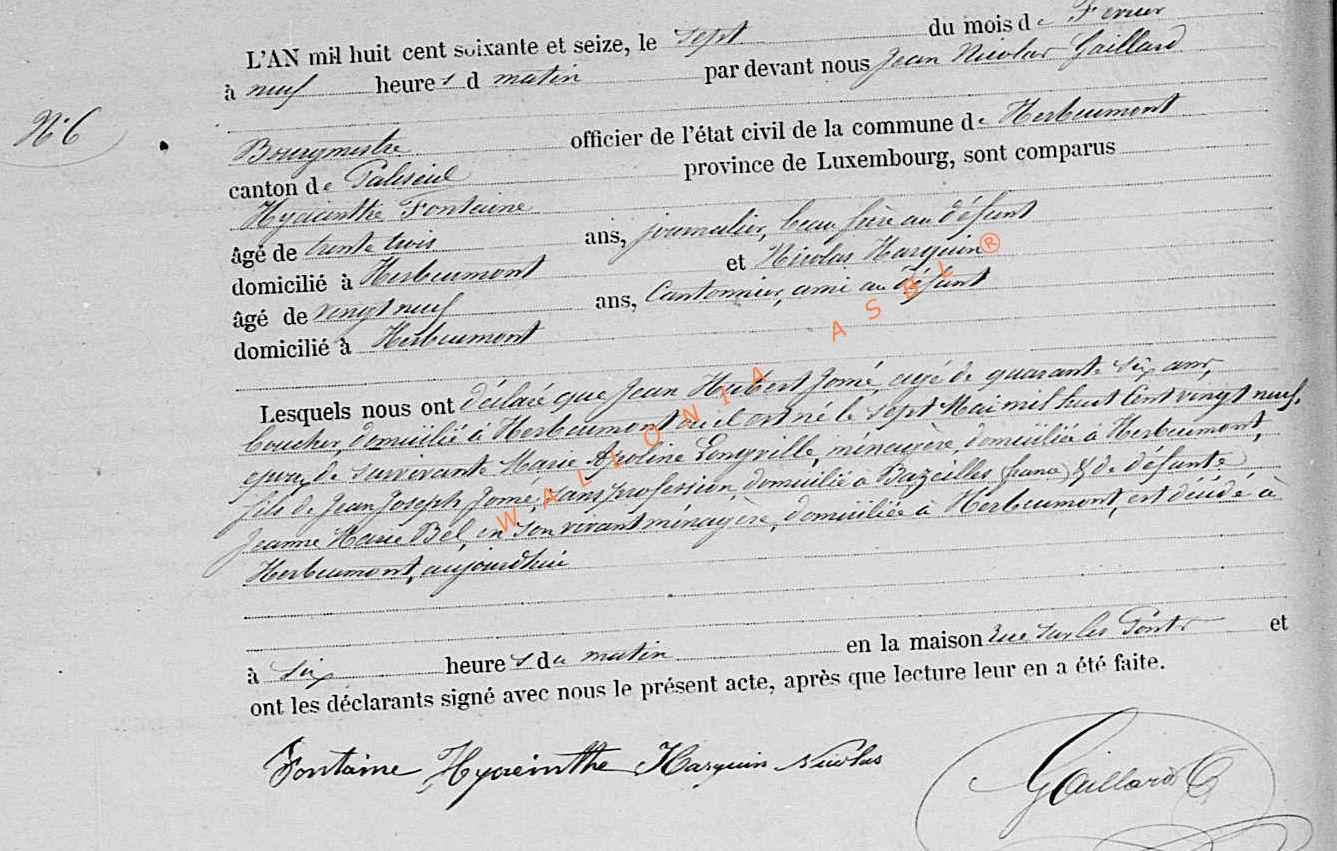 L'AN mil huit cent soixante et seize, le sept du mois de Fevrier
à neuf heures d matin par devant nous Jean Nicolas Gaillard
N°6
Bourgmestre officier de l'état civil de la commune de Herbeumont
canton de Paliseul province de Luxembourg, sont comparus
Hyacinthe Fontaine
âgé de trente trois ans, journalier, beau frère au défunt
domicilié à Herbeumont et Nicolas Harquin
âgé de vingt neuf ans, Cantonnier, ami au défunt
domicilié à Herbeumont
Lesquels nous ont déclaré que Jean Hubert Jomé, agé de quarante six ans,
boucher, domicilié à Herbeumont où il est né le sept Mai mil huit cent vingt neuf,
époux de survivante Marie Apoline Longville, ménagère, domiciliée à Herbeumont,
fils de Jean Joseph Jomé, sans profession, domicilié à Bazeilles (france) & de défunte
Jeanne Marie Bel, en son vivant ménagère, domiciliée à Herbeumont, est décédé à
Herbeumont, aujourd'hui
à six heures du matin en la maison rue sur les Ponts et
ont les déclarants signé avec nous le présent acte, après que lecture leur en a été faite.
Fontaine Hyacinthe Harquin Nicolas Gaillard
WALLONIA ASBL ®